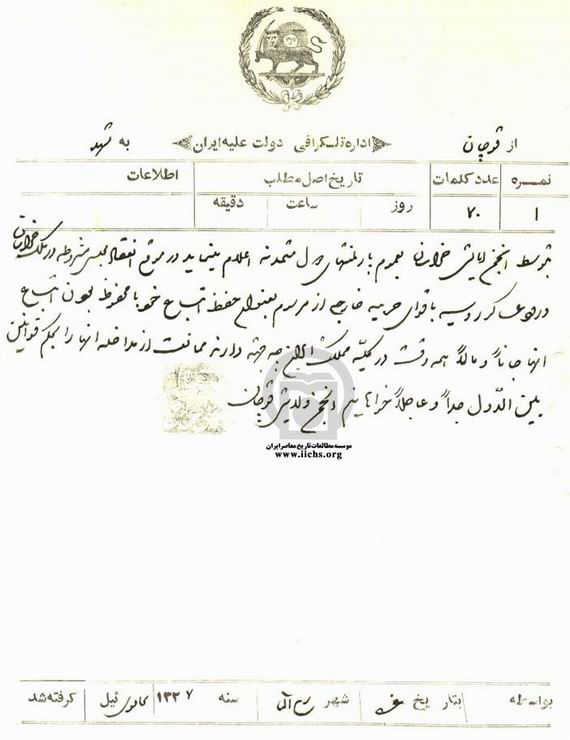 از قوچان
اداره تلگرافی دولت علیه ایران
به مشهد
نمره عدد کلمات تاریخ اصل مطلب اطلاعات
روز ساعت دقیقه
۱ ۷۰
بتوسط انجمن ایالتی خراسان بعموم پارلمنتهای دول متمدنه اعلام مینماید در موقع انعقاد مجلس مشروطه در تملک خراسان
ورود عسکر روسیه با قوای حربیه خارج از مرسوم بعنوان حفظ اتباع خود با محفوظ بودن اتباع
آنها جاناً و مالاً همه وقت در کلیه مملکت ایران چه جهة دارند ممانعت از مداخله آنها را بحکم قوانین
بین الدول جداً و عاجلاً خواهانیم انجمن ولایتی قوچان
موسسه مطالعات تاریخ معاصر ایران
www.iichs.org
بواسطه بتاریخ شهر سنه ۱۳۲۷ ئیل گرفته شد